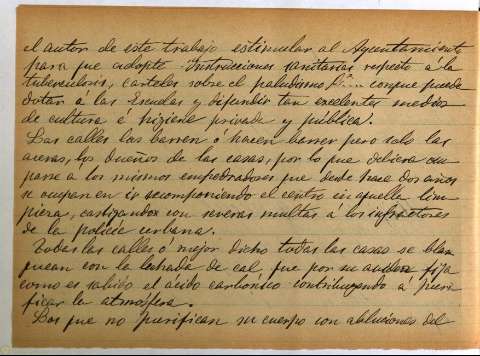 el autor de este trabajo estimular al Ayuntamiento
para que adopte Instrucciones sanitarias respecto á la
tuberculosis, carteles sobre el paludismo con que pueda
dotar á las Escuelas y difundir tan excelentes medios
de cultura é higiene privada y pública.
Las calles las barren ó hacen barrer pero solo las
aceras, los dueños de las casas, por lo que debiera ocu
parse a los mismos empedradores que desde hace dos años
se ocupan en ir recomponiendo el centro en aquella lim
pieza, castigandox con severas multas á los infractores
de la policía urbana.
Todas las calles ó mejor dicho todas las casas se blan
quean con la lechada de cal, que por su avidez fija
como es sabido el ácido carbónico contribuyendo á puri
ficar la atmósfera.
Los que no purifican su cuerpo con abluciones del